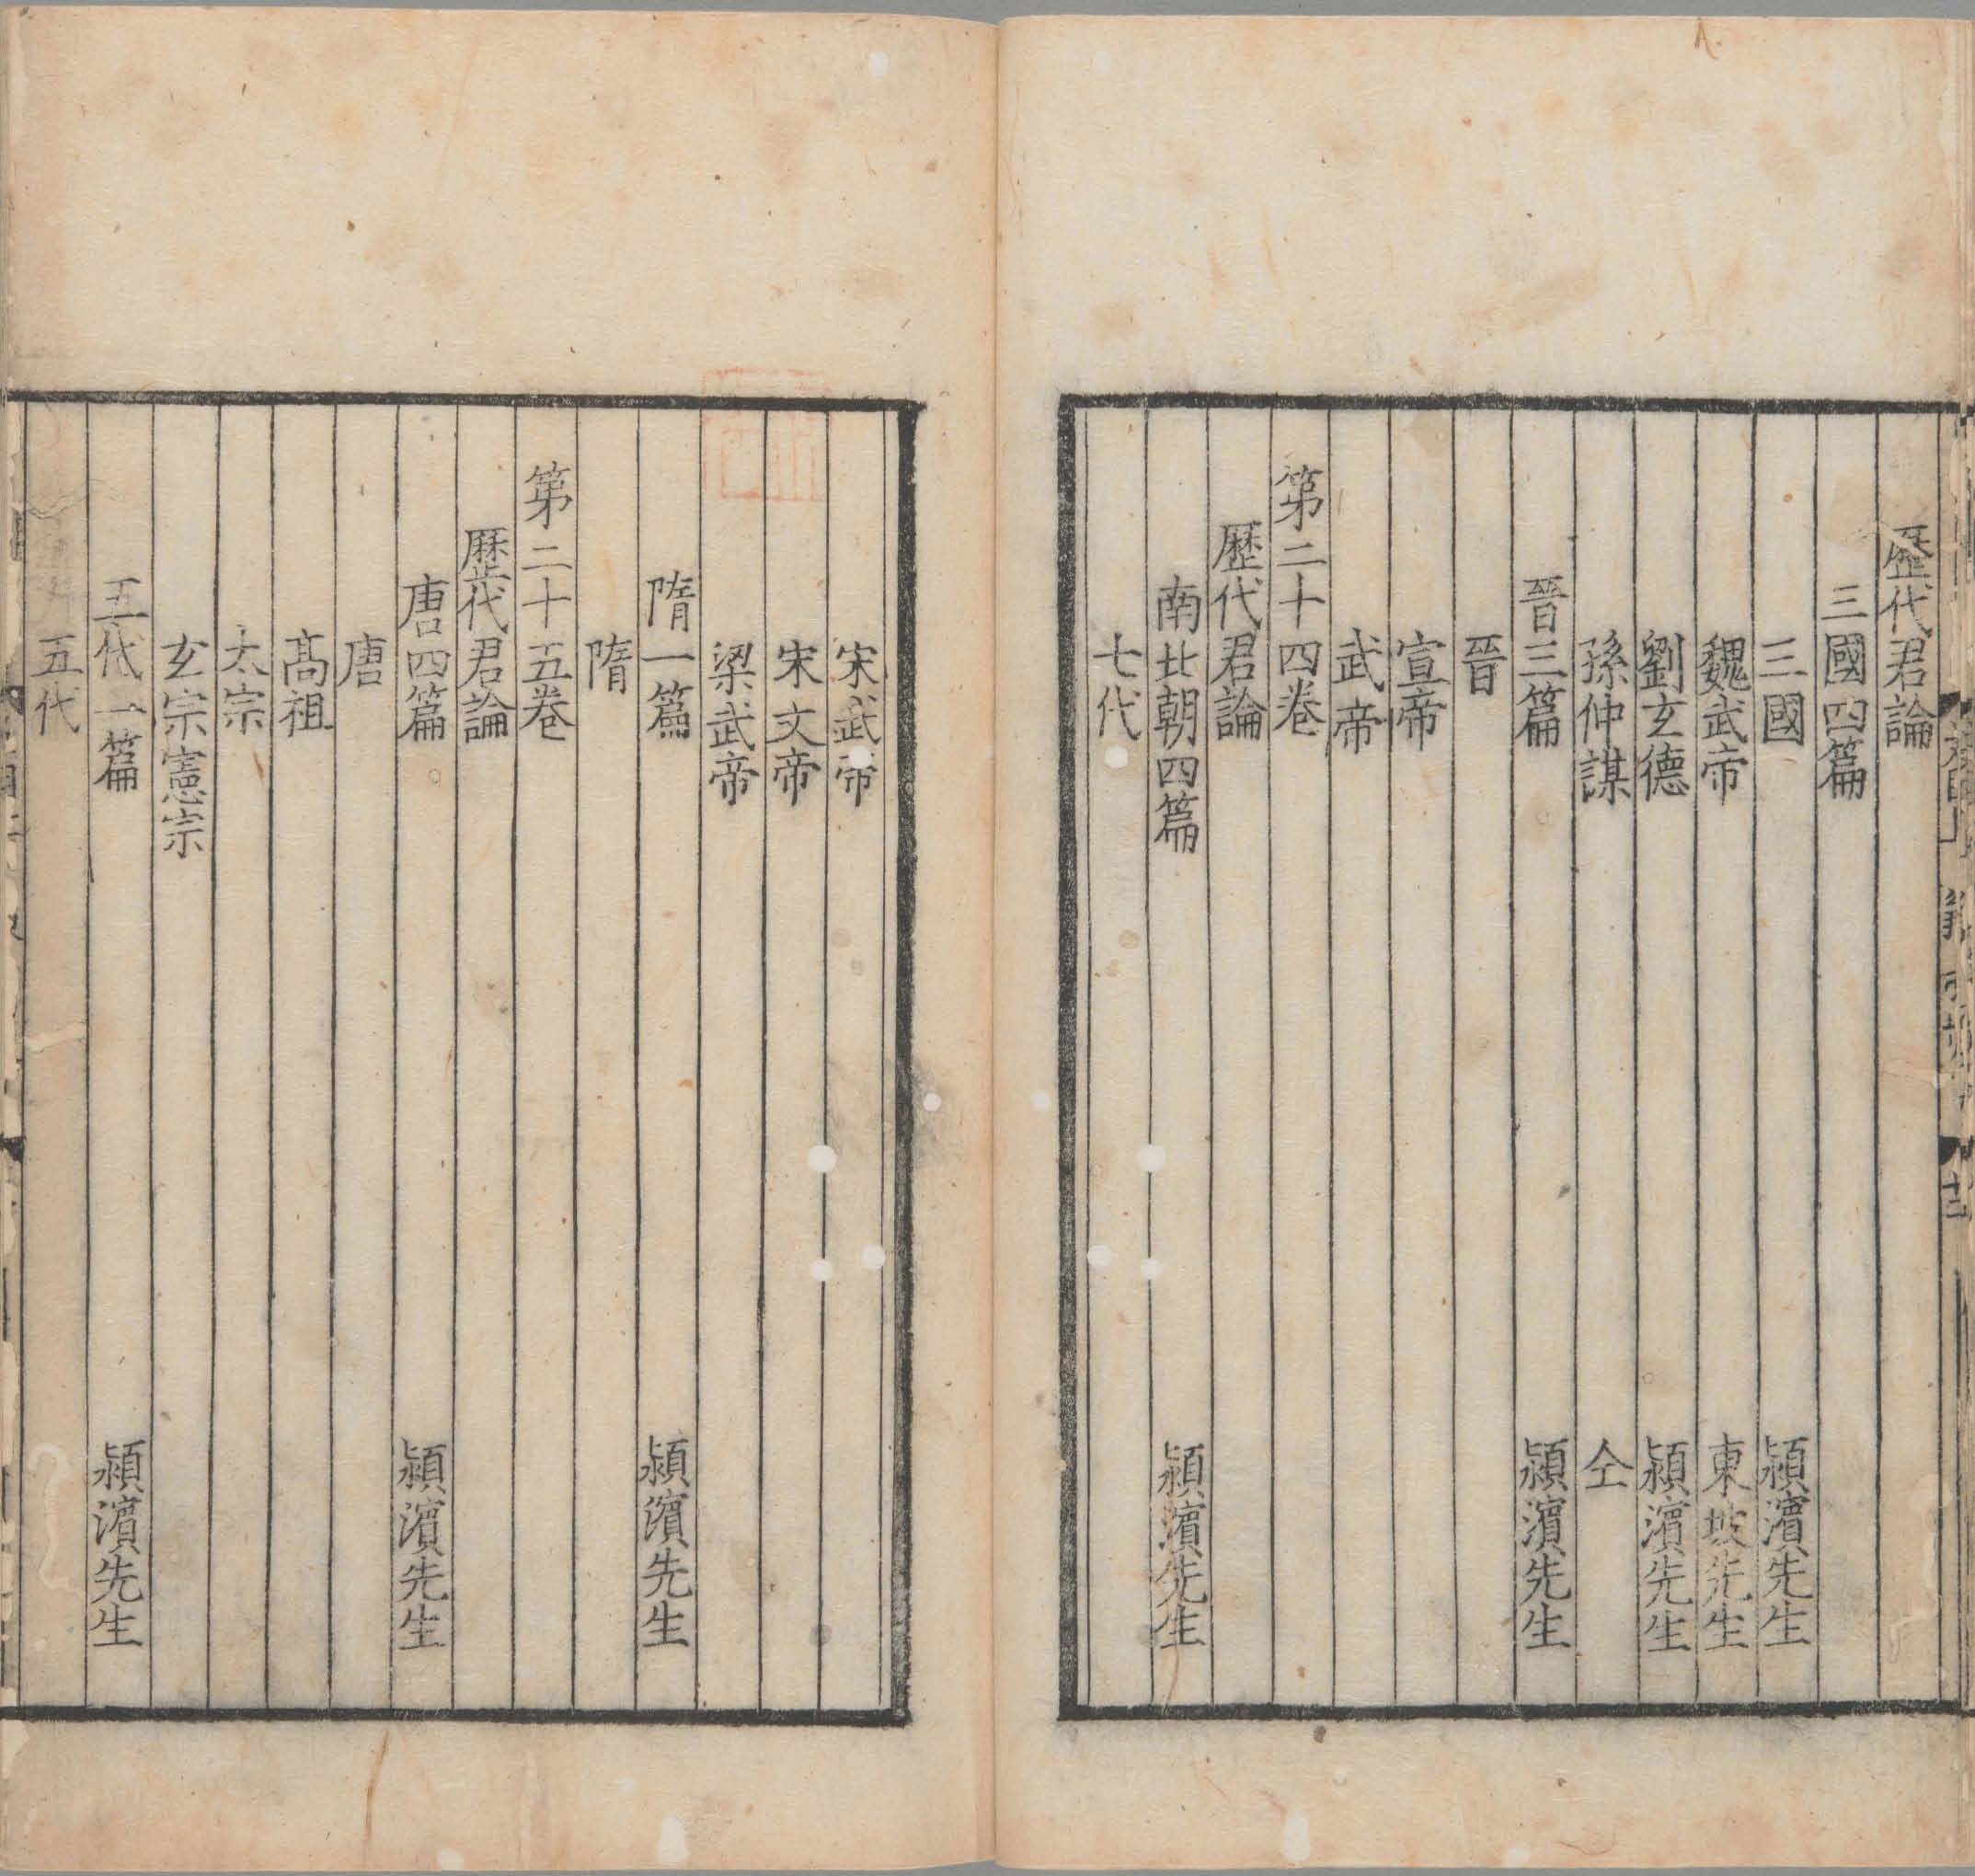 歷代君論
三國四篇
三國 潁濱先生
魏武帝 東坡先生
劉玄德 潁濱先生
孫仲謀 仝
晉三篇 潁濱先生
晉
宣帝
武帝
第二十四卷
歷代君論
南北朝四篇 潁濱先生
七代
宋武帝
宋文帝
梁武帝
隋一篇 潁濱先生
隋
第二十五卷
歷代君論
唐四篇 潁濱先生
唐
髙祖
太宗
玄宗憲宗
五代一篇 潁濱先生
五代